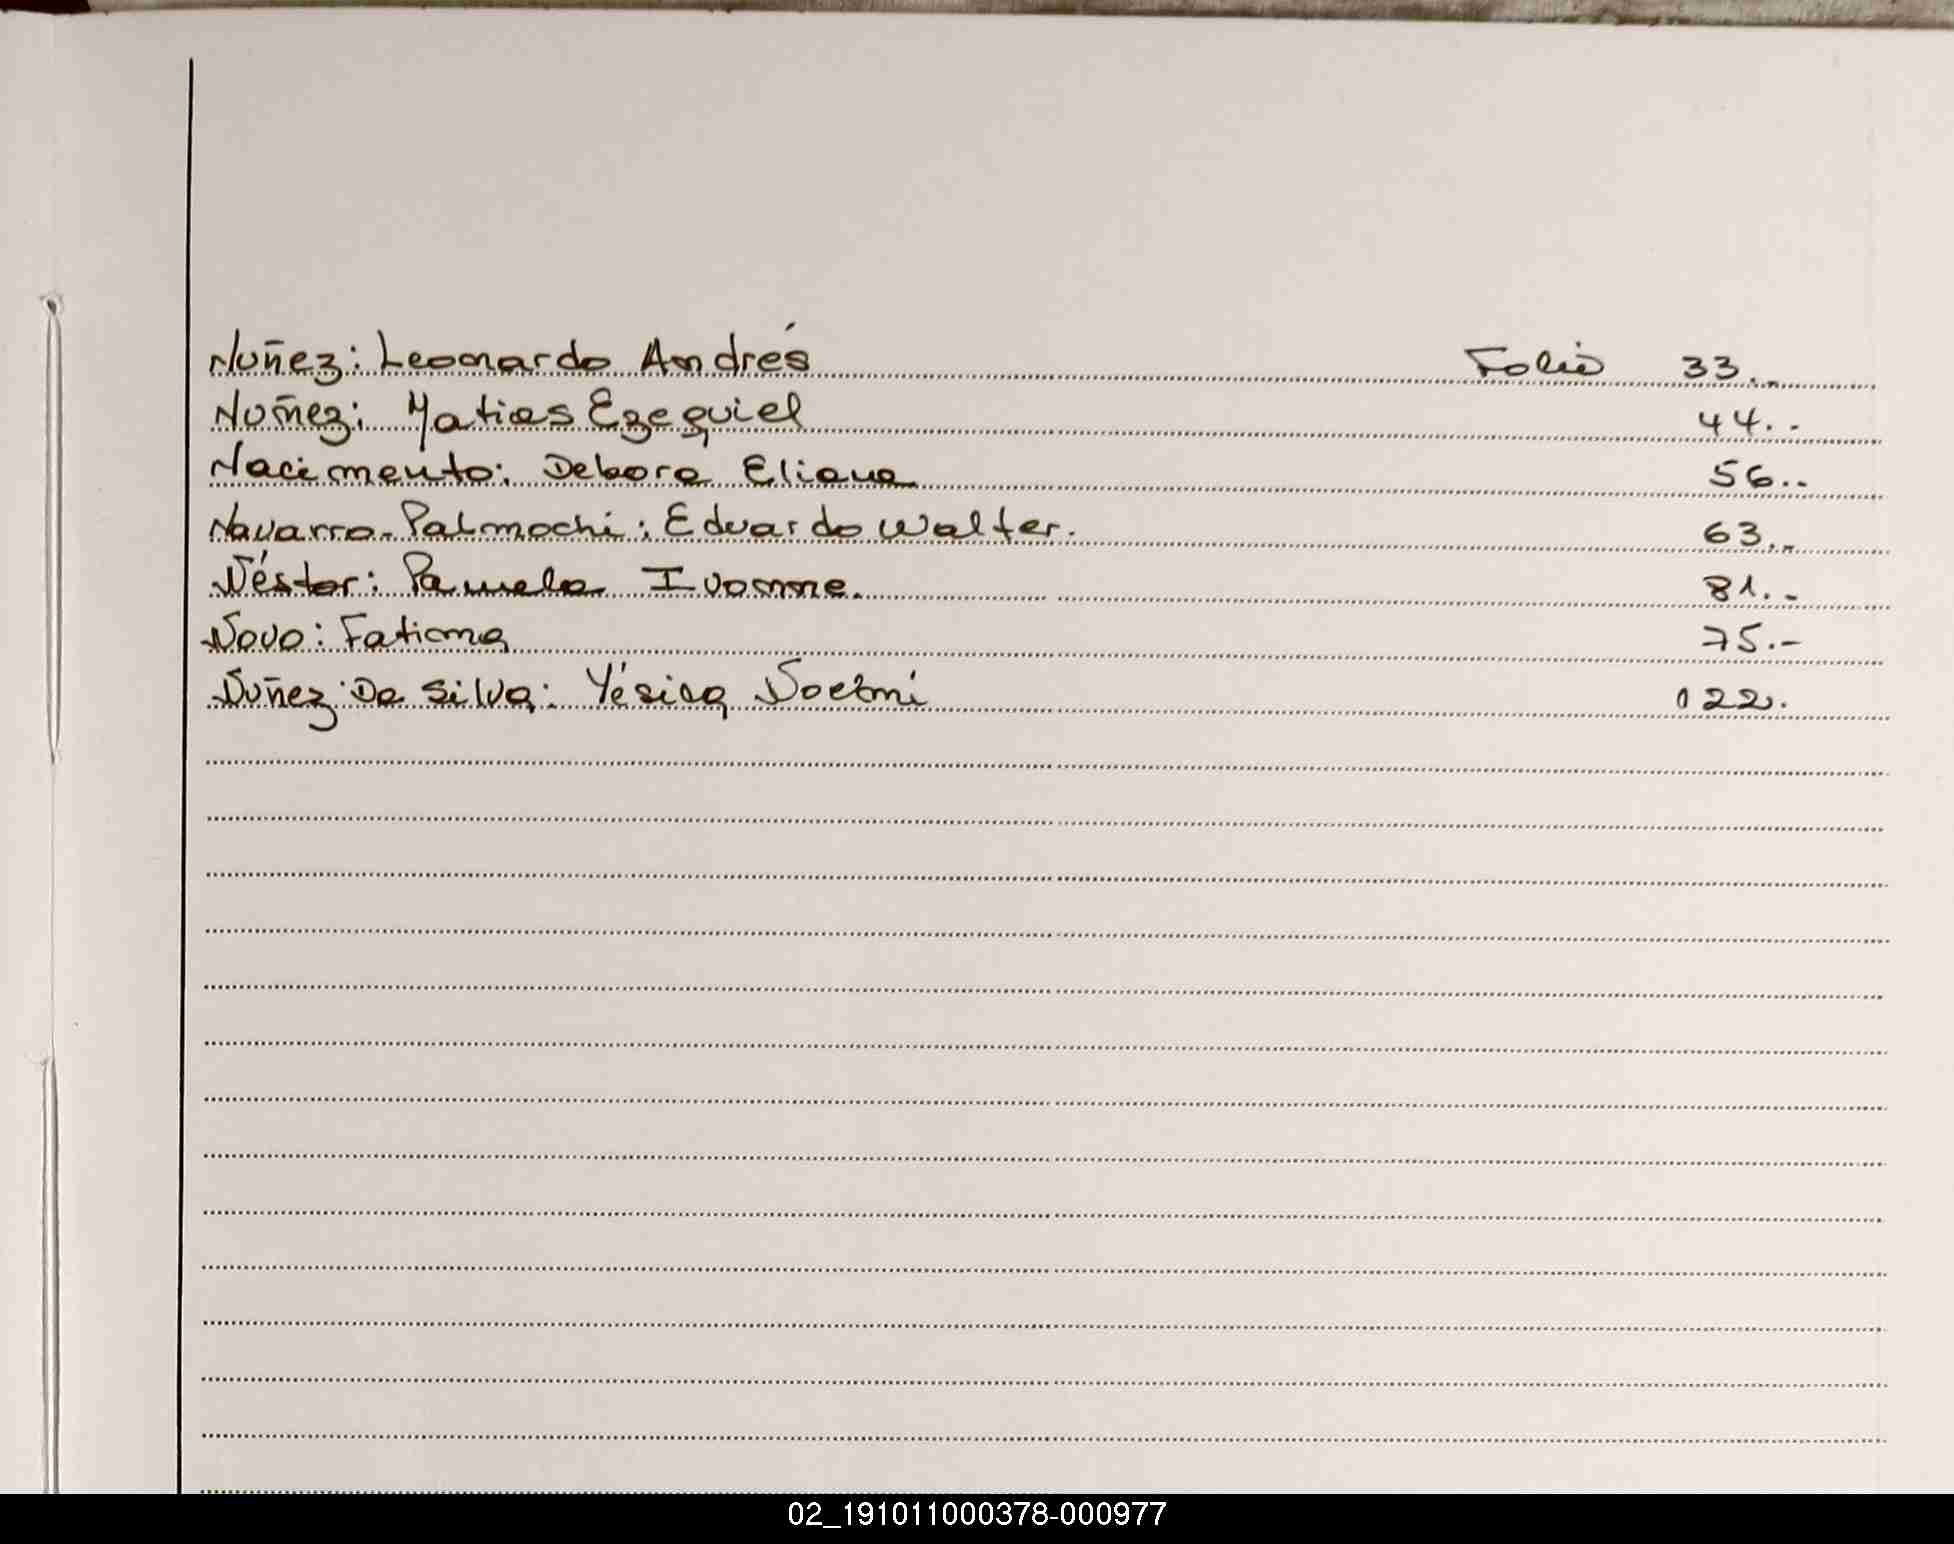 Nuñez: Leonardo Andrés Folio 33..
Nuñez: Matias Ezequiel 44..
Nacimento: Debora Eliana 56..
Navarro-Palmochi: Eduardo Walter. 63..
Néstor: Pamela Ivonne. 81..
Novo: Fatima 75.-
Nuñez Da Silva: Yésica Noemi 022.
02_191011000378-000977